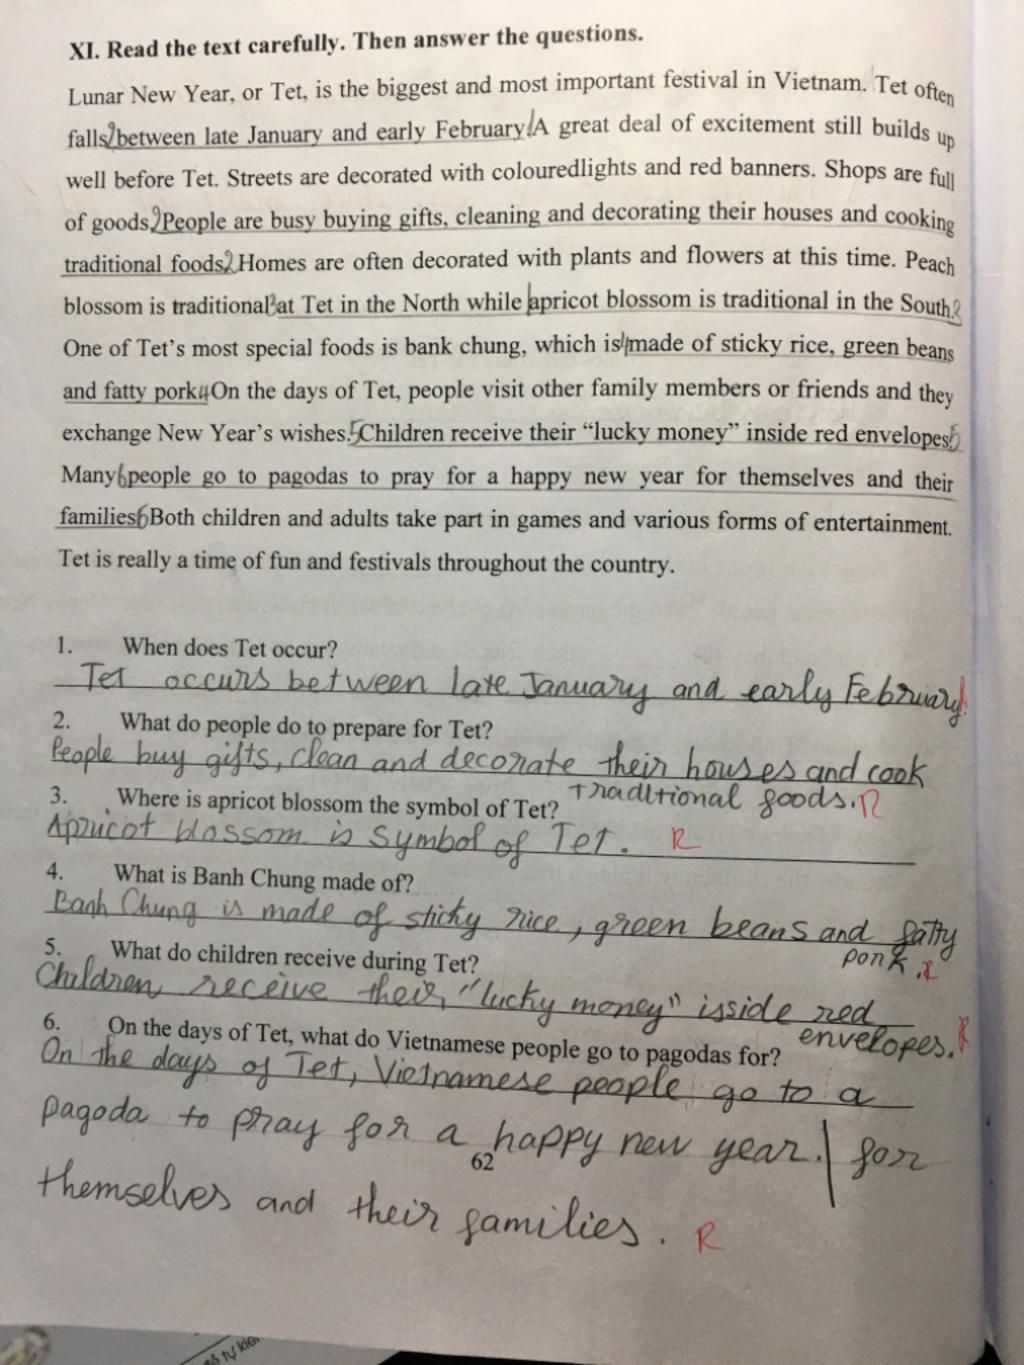 XI. Read the text carefully. Then answer the questions.
Lunar New Year, or Tet, is the biggest and most important festival in Vietnam. Tet often
falls 2 between late January and early February. 1 A great deal of excitement still builds up
well before Tet. Streets are decorated with colouredlights and red banners. Shops are full
of goods. 2 People are busy buying gifts, cleaning and decorating their houses and cooking
traditional foods. 2 Homes are often decorated with plants and flowers at this time. Peach
blossom is traditional 3 at Tet in the North while apricot blossom is traditional in the South. 3
One of Tet's most special foods is bank chung, which is 4 made of sticky rice, green beans
and fatty pork. 4 On the days of Tet, people visit other family members or friends and they
exchange New Year's wishes. 5 Children receive their “lucky money” inside red envelopes. 5
Many 6 people go to pagodas to pray for a happy new year for themselves and their
families. 6 Both children and adults take part in games and various forms of entertainment.
Tet is really a time of fun and festivals throughout the country.
1. When does Tet occur?
Tet occurs between late January and early February.
2. What do people do to prepare for Tet?
People buy gifts, clean and decorate their houses and cook
traditional foods. R
3. Where is apricot blossom the symbol of Tet?
Apricot blossom is symbol of Tet. R
4. What is Banh Chung made of?
Banh Chung is made of sticky rice, green beans and fatty
pork. R
5. What do children receive during Tet?
Children receive their "lucky money" isside red
envelopes. R
6. On the days of Tet, what do Vietnamese people go to pagodas for?
On the days of Tet, Vietnamese people go to a
pagoda to pray for a happy new year. | for
62
themselves and their families. R